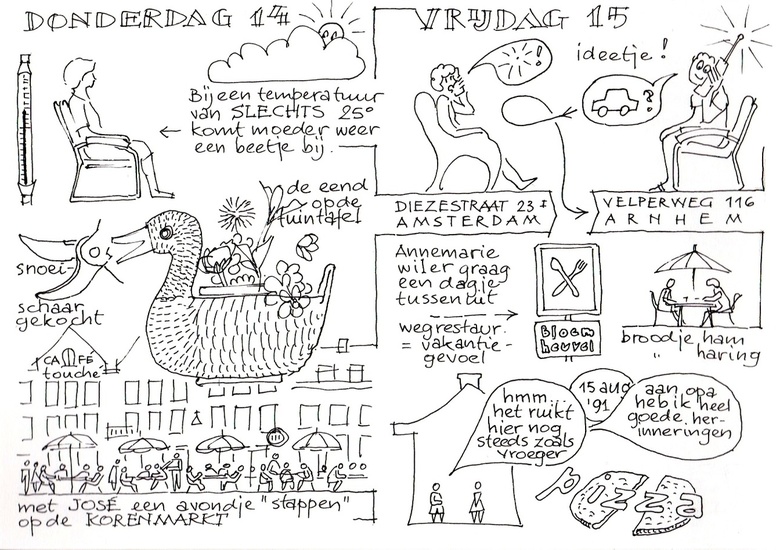 DONDERDAG 14
Bij een temperatuur
van SLECHTS 25°
← komt moeder weer
een beetje bij.
de eend
op de
tuintafel
snoei-
schaar
gekocht
CAFÉ
touche
met JOSÉ een avondje "stappen"
op de KORENMARKT
VRIJDAG 15
!
ideetje!
?
DIEZESTRAAT 23 I
AMSTERDAM
VELPERWEG 116
ARNHEM
Annemarie
wil er graag
een dagje
tussenuit
wegrestaur.
= vakantie-
gevoel
Bloem
heuvel
broodje ham
" haring
hmm...
het ruikt
hier nog
steeds zoals
vroeger
15 aug
'91
aan opa
heb ik heel
goede her-
inneringen
pizza